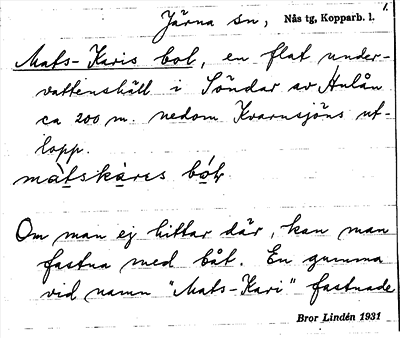 Järna sn, Nås tg, Kopparb. l. 1.
Mats-Karis bol, en flat under-
vattenshäll i Söndar av Hulån
ca 200 m. nedom Kvarnsjöns ut-
lopp.
màtskàrɩs bó̀ɫ
Om man ej hittar där, kan man
fastna med båt. En gumma
vid namn "Mats-Kari" fastnade
Bror Lindén 1931